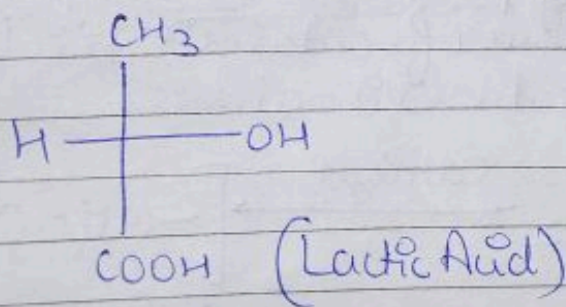 CH3
H OH
COOH (Lactic Acid)